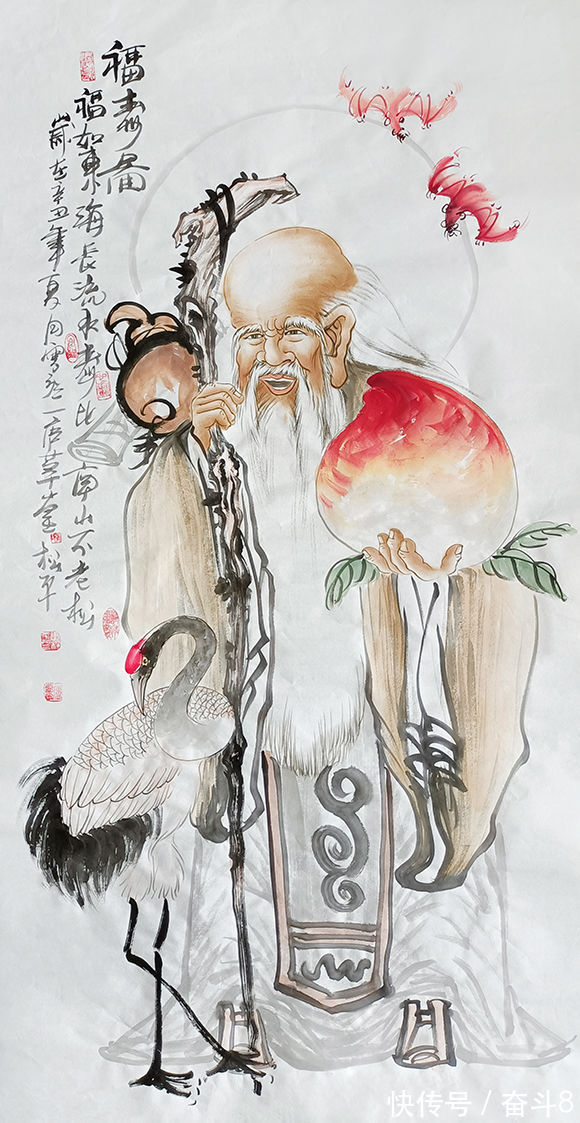 福寿圖
福如東海長流水壽比南山不老松
歲在辛丑年夏月一居草堂松平
快传号 / 奋斗8